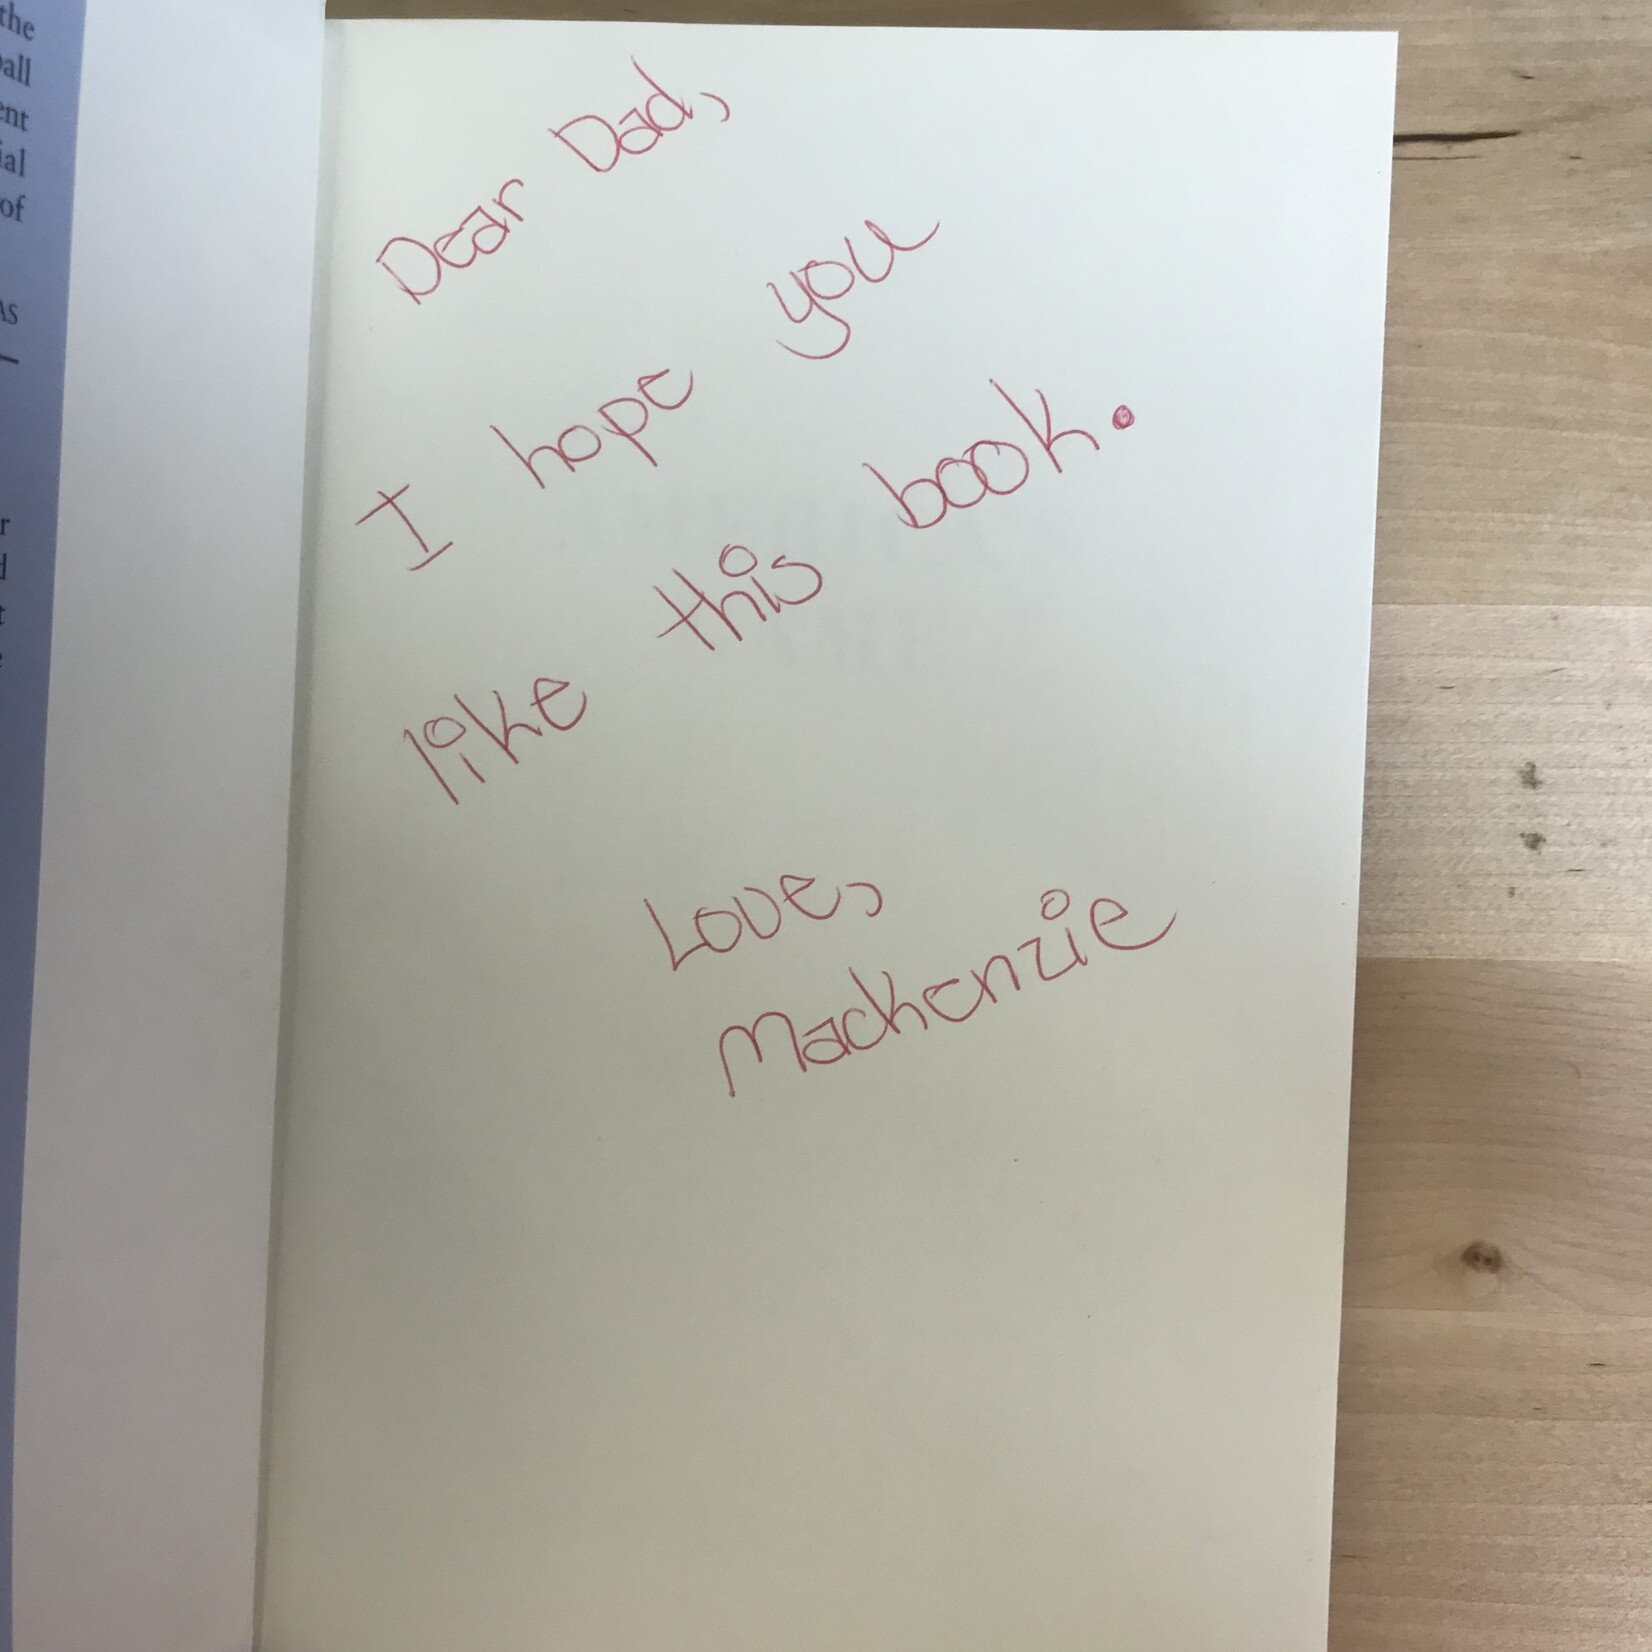 the
ball
ent
ial
of
As
r
d
t
e
Dear Dad,
I hope you
like this book.
Love,
Mackenzie